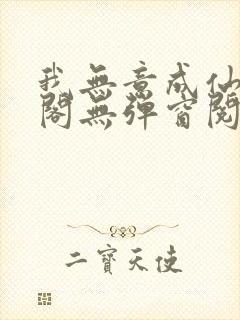 我無意成仙
閣無彈窗閱
二寶天使